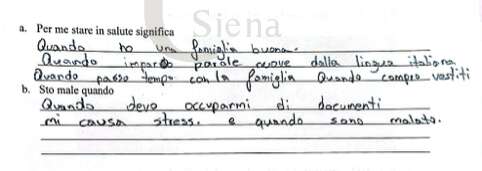 Siena
a. Per me stare in salute significa
Quando ho una famiglia buona.
Quando imparo parole nuove dalla lingua italiana
Quando passo tempo con la famiglia Quando compro vestiti
b. Sto male quando
Quando devo occuparmi di documenti
mi causa stress. e quando sono malato.